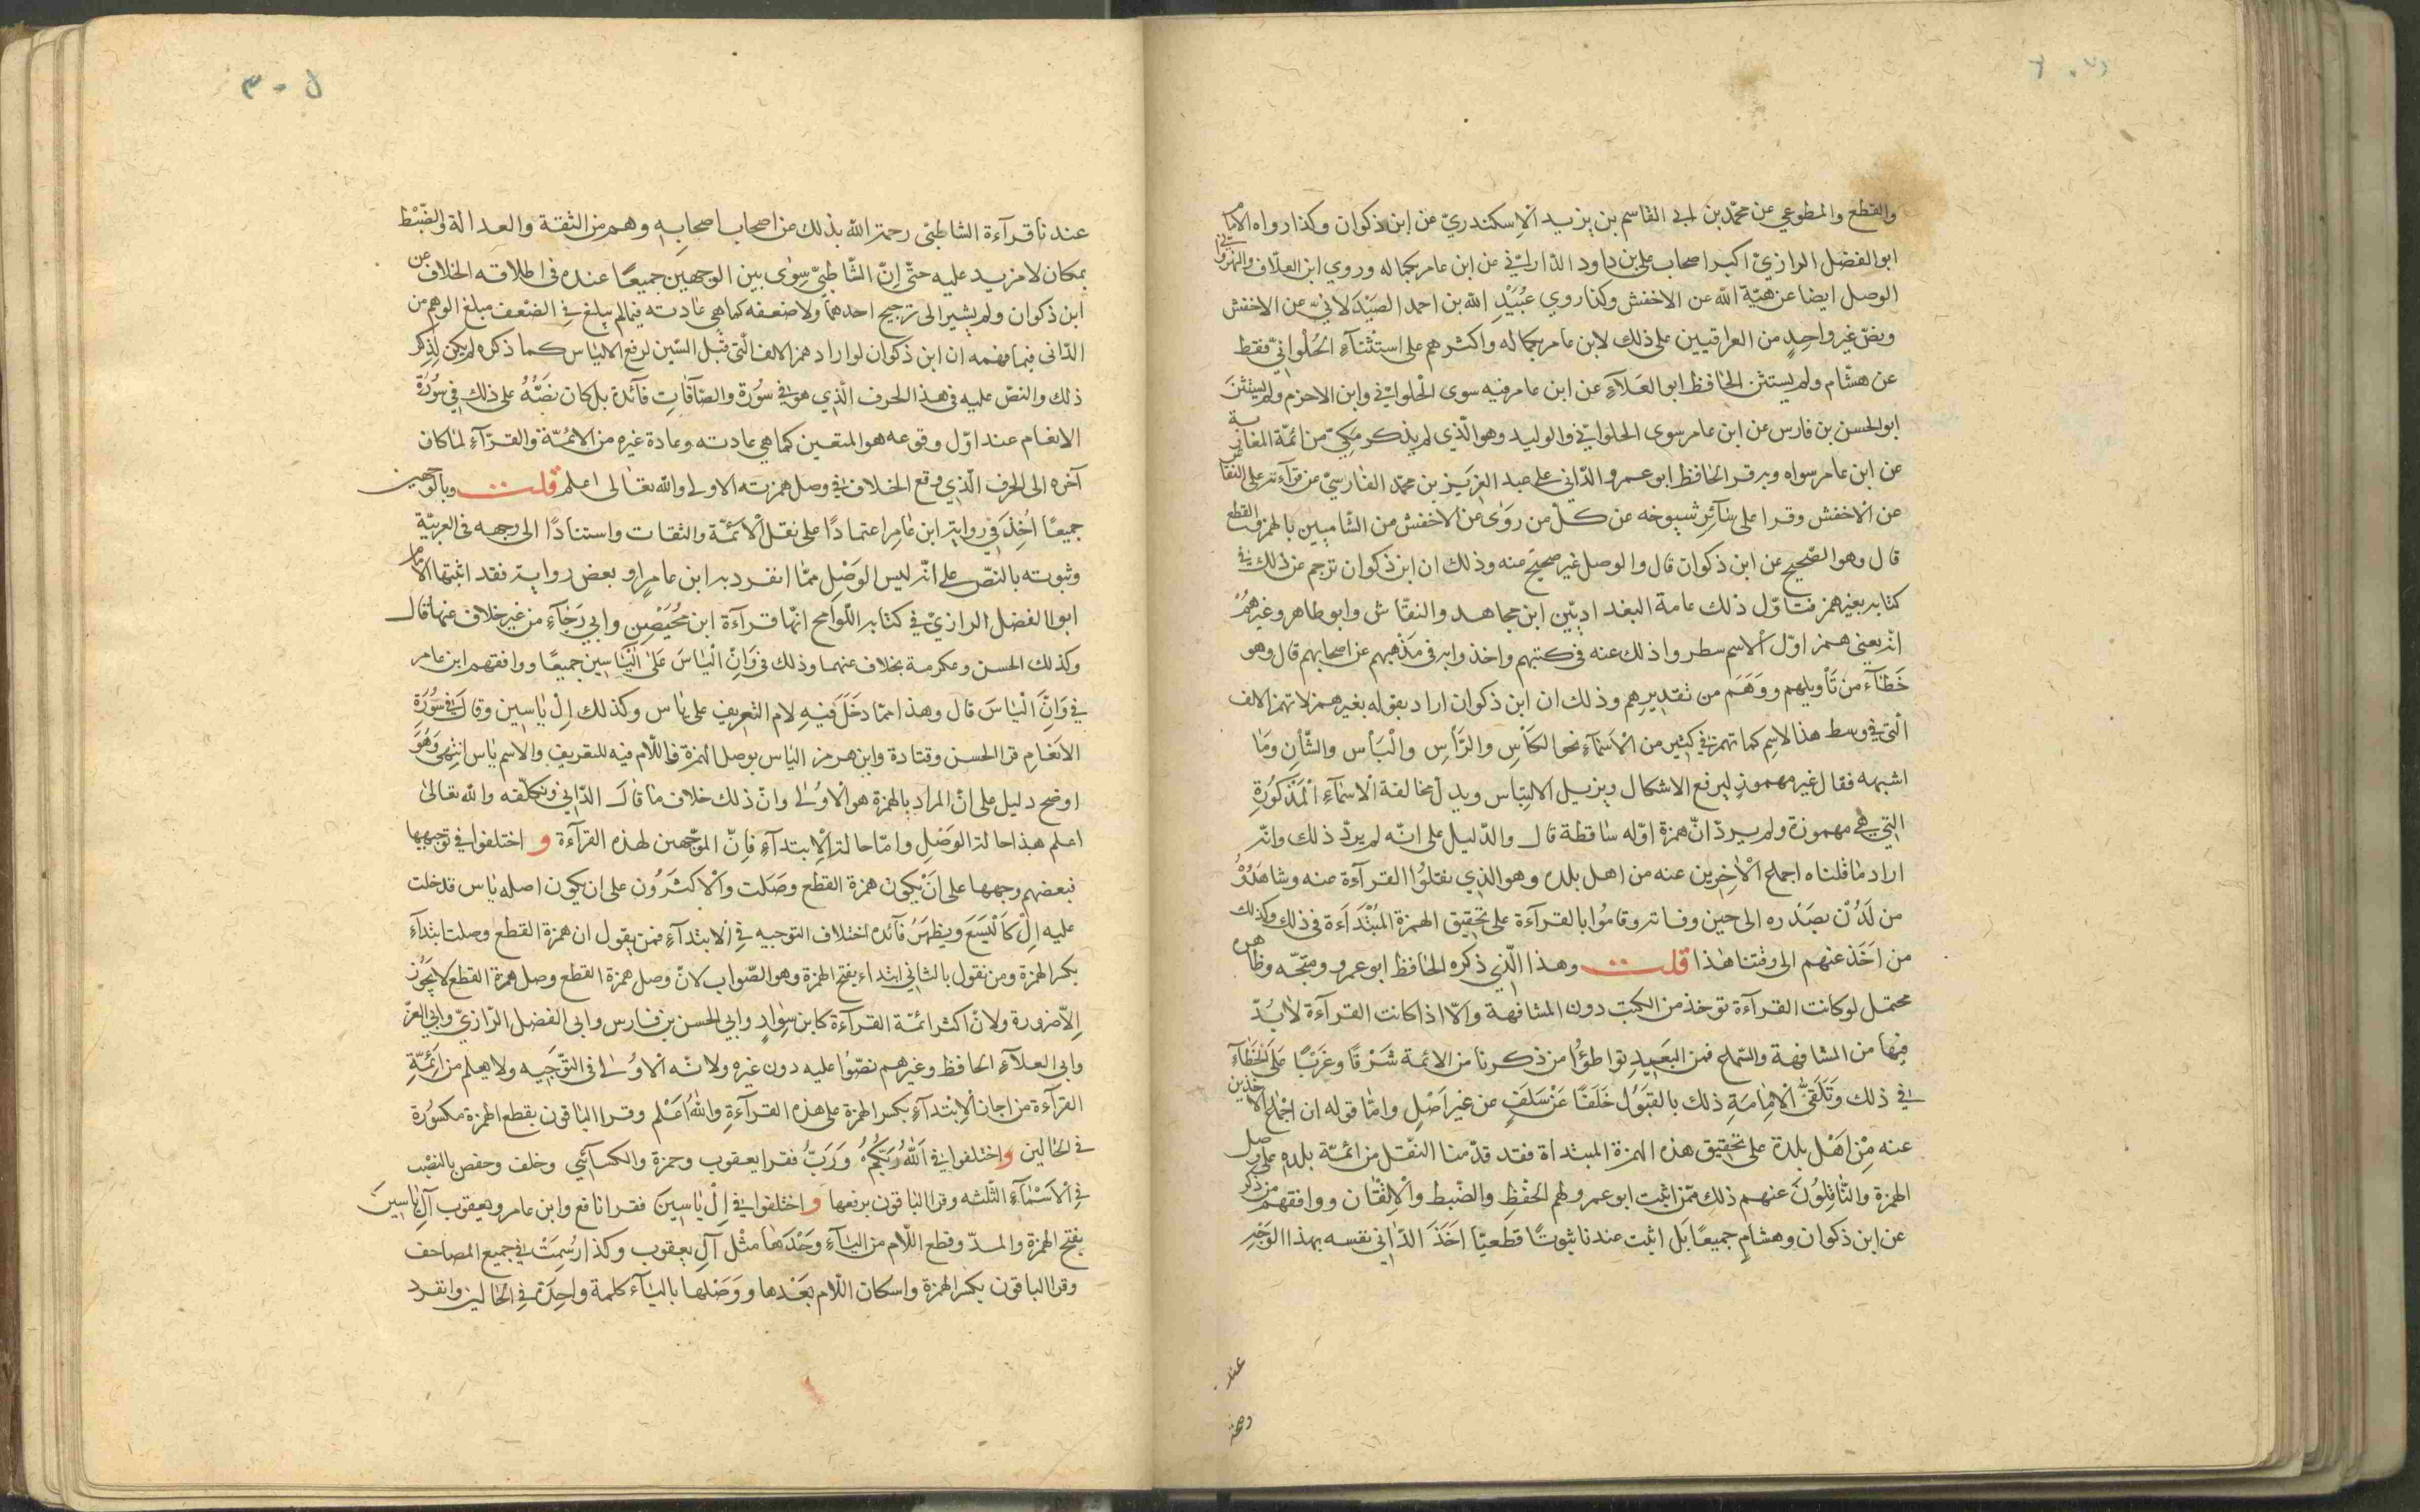 والقطع والمطوعي عن محمّد بن ابي القاسم بن يزيد الاسكندريّ عن ابن ذكوان وكذا رواه الامام
ابو الفضل الرازيّ اكبر اصحاب علي بن داود الدّارانيّ عن ابن عامر بكماله وروي ابن العلّاف والنهروانيّ
الوصل ايضا عن هبة الله عن الاخفش وكذا روي عُبَيْدِ الله بن احمد الصَيْدَلانيّ عن الاخفش
ونصّ غير واحدٍ من العراقيين على ذلك لابن عامر بكماله واكثرهم على استثنآءِ الحُلْوانيّ فقط
عن هشّام ولم يستثن الحافظ ابو العَلآءِ عن ابن عامر فيه سوى الحلوانيّ وابن الاحزم ولم يستثن
ابو الحسن بن فارس عن ابن عامر سوى الحلوانيّ والوليد وهو الّذي لم يذكر مَكيّ من ائمّة المغاربة
عن ابن عامر سواه وبه قرا الحافظ ابو عمرو الدّاني على عبد العزيز بن محمّد الفارسيّ عن قرآءته على النقاش
عن الاخفش وقرا على سآئر شيوخه عن كلّ من روَى عن الاخفش من الشّاميين بالهمز والقطع
قال وهو الصّحيح عن ابن ذكوان قال والوصل غير صحيح منه وذلك ان ابن ذكوان ترجم عن ذلك في
كتابه بغير همز فتاوّل ذلك عامة البغداديّين ابن مجاهد والنقّاش وابو طاهر وغيرهُمْ
انّه يعني همز اوّل الاسم سطروا ذلك عنه في كتبهم واخذوا به في مَذهبهم عن اصحابهم قال وهو
خَطَآء من تَأويلهم ووَهَم من تقديرهم وذلك ان ابن ذكوان اراد بقوله بغير همز لا تهمز الالف
الّتي في وسط هذا الاسِم كما تهمز في كثير من الْاَسمآءِ نحو الكَأسِ والرَّأسِ والْبَأس والشّأنِ وَمَا
اشبهه فقال غير مهموزٍ ليرفع الاشكال ويزيل الالتِباس ويدل مخالفة الاسمآءِ الْمَذْكُورَةِ
الّتي هي مهموزة ولم يردّ انّ همزة اوّله سَاقطة قال والدّليل على انّه لم يردّ ذلك وانّه
اراد مَا قلناه اجماع الْاخِرين عنه من اهل بلده وهو الّذي يفتلوُا القرآءة منه وشاهَدُوْهُ
من لَدُنْ بصَدْره الى حين وفاته وقامُوا بالقرآءة على تحقيق الهمزة المُبْتَدَاءَة في ذلك وكذلك
من اَخَذ عنهم الى وقتنا هٰذا قلت وهذا الّذي ذكره الحافظ ابو عمرو ومتجّه وظاهر
محتمل لو كانت القرآءة توخذ من الكتب دون المشافهة والّا اذا كانت القرآءة لابُدّ
فيها من المشافهة والسّماع فمن البَعيد تواطؤُا من ذكرنا من الائمة شَرْقًا وغَرْبًا عَلَى الخَطَآءِ
في ذلك وَتَلَقيّ الْامِامَةِ ذلك بالقبَوُل خَلَفًا عَنْ سَلَفٍ عن غير اَصْلٍ وامّا قوله ان اجْمَاع الاخذين
عنه مِنْ اَهْل بلدة على تحقيق هذه الهمزة المبتداة فقد قدّمنا النّقل من ائمّة بلدهِ على وصل
الهمزة والنَّاقِلُونَ عنهم ذلك ممّن اثبت ابو عمرو لهم الحفْظِ والضّبط والْاِتقان ووافقهم من ذكر
عن ابن ذكوان وهشامٍ جميعًا بَل اثبت عندنا ثبوتًا قطعيّا اَخَذَ الدّاني نفسه بهذا الوَجْهِ
عند
وصحة
عندنا قرآءة الشاطبّى رحمة الله بذلك من اصحاب اصحابه وهم من الثقة والعدالة والضّبْط
بمكان لا مزيد عليه حتّى انّ الشّاطبيّ سِوٰى بين الوجهين جميعًا عنده في اطلاقه الخلاف عن
ابن ذكوان ولم يشير الى ترجيح احدهما ولا ضعفه كما هي عادته فيما لم يبلغ في الضّعف مبلغ الوهم من
الدّانى فيما فهمه ان ابن ذكوان لو اراد همز الالف الّتى قبْل السّين لرفع الالتباس كما ذكره لم يكن لذِكر
ذلك والنصّ عليه في هذا الحرف الّذي هو في سُورَة والصّآفّاتِ فآئدة بل كان نصُّهُ على ذلك في سُورَة
الانعام عند اوّل وقوعه هو المتعين كما هي عادته وعادة غيره من الائمُّة والقرّآءِ لما كان
آخره الى الحرف الّذي وقع الخلاف في وصل همزته الاولى والله تعَالى اعلم قلت وبالوَجهين
جميعًا اُخِذَ في روايةِ ابن عَامِر اعتمادًا على نقل الْأئمّة والثقات واستنادًا الى وجهه في العربيّة
وثبوته بالنصّ على انّه ليس الوصَلِ ممّا انفرد به ابن عامرٍ او بعض رواية فقد اثبتها الامام
ابوا الفضل الرازيّ في كتابه اللّوامح انّها قرآءَة ابن مُحَيْصِنٍ وابي رَجَآءٍ من غير خلاف عنهما قال
وكذلك الحسن وعكرمة بخلاف عنهما وذلك في وَانِّ اليَاسَ عَلى اليَاسِين جميعًا ووافقهم ابن عامر
في وَاِنَّ الْيَاسَ قال وهذا ممّا دخَلَ فيهِ لام التعريف على ياس وكذلك اِلْ يَاسِين وقال في سُورَةِ
الانَعْامِ قرا الحسن وقتادة وابن هرمز الياس بوصل الهمزة فاللّام فيه للتعريف والاسم ياس انتهى وَهُوَ
اوضح دليل على انّ المراد بالهمزة هو الاُوُلَى وانّ ذلك خلاف مَا قالَ الدّاني وتكلّفه والله تعالىٰ
اعلم هذا حالة الوصَلِ وامّا حالة الْاِبتدآءِ فاِنّ الموجّهين لهذه القرآءة و اختلفوا في توجيهها
فبعضهم وجهها على اَنْ يكون همزة القطع وصَلت والْاكثرَوُن على ان يكون اصله يَاس فدخلت
عليه اِلْ كَالْيَسَعَ ويظهَرُ فآئده اختلاف التوجيه في الابتدآءِ فمن يقول ان همزة القطع وصلت ابتدآء
بكسر الهمزة ومن يقول بالثاني ابتداء بفتح الهمزة وهو الصّواب لانّ وصل همزة القطع وصل همزة القطع لا يَجُوُز
اِلّا ضرورة ولانّ اكثر ائمّة القرآءة كابن سِوارٍ وابي الحسن بن فارس وابى الفضل الرّازيّ وابي العزّ
وابى العلآءِ الحافظ وغيرهم نصّوا عليه دون غيره ولانّه الاُوُلى في التوّجيه ولا يعلم من ائمِّةِ
القرآءة من اجاز الْابْتدآءِ بكسر الهمزة على هذه القرآءةِ والله اَعْلم وقرا الباقون بقطع الهمزة مكسُورة
في الحالين واختلفوا في اَللّٰهُ رَبّكُمْ وَرَبُّ فقرا يعقوب وحمزة والكسآئي وخلف وحفص بالنصْب
في الاَسْمَآءِ الثّلثه وقرا البَاقون برفعها و اختلفوا في اِلْ يَاسِينَ فقرا نافع وابن عامر ويعقوب آلِ يَاسِينَ
بفتح الهمزة والمدّ وقطع اللّام من اليَآءِ وَحْدَهَا مثْل آلِ يعقوب وكذا رُسِمَتْ في جميع المصَاحف
وقرا الباقون بكسر الهمزة واسكان اللّام بعَدْها ووَصَلها باليَآءِ كلمة واحدة في الحالين وانفرد